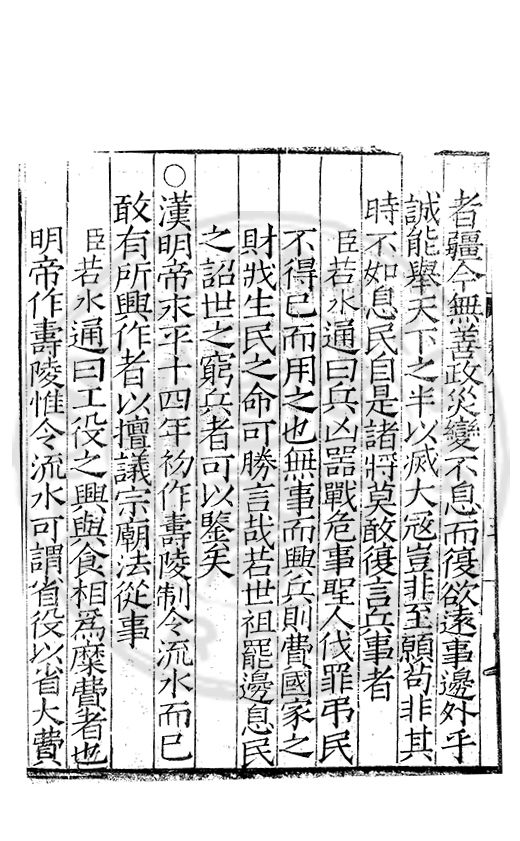 者疆今無善政災變不息而復欲遠事邊外乎
誠能舉天下之半以滅大冦豈非至願苟非其
時不如息民自是諸將莫敢復言兵事者
臣若水通曰兵凶器戰危事聖人伐罪弔民
不得已而用之也無事而興兵則費國家之
財戕生民之命可勝言哉若世祖罷邊息民
之詔世之窮兵者可以鑒矣
○漢明帝永平十四年初作壽陵制令流水而已
敢有所興作者以擅議宗廟法從事
臣若水通曰工役之興與食相爲糜費者也
明帝作壽陵惟令流水可謂省役以省大費